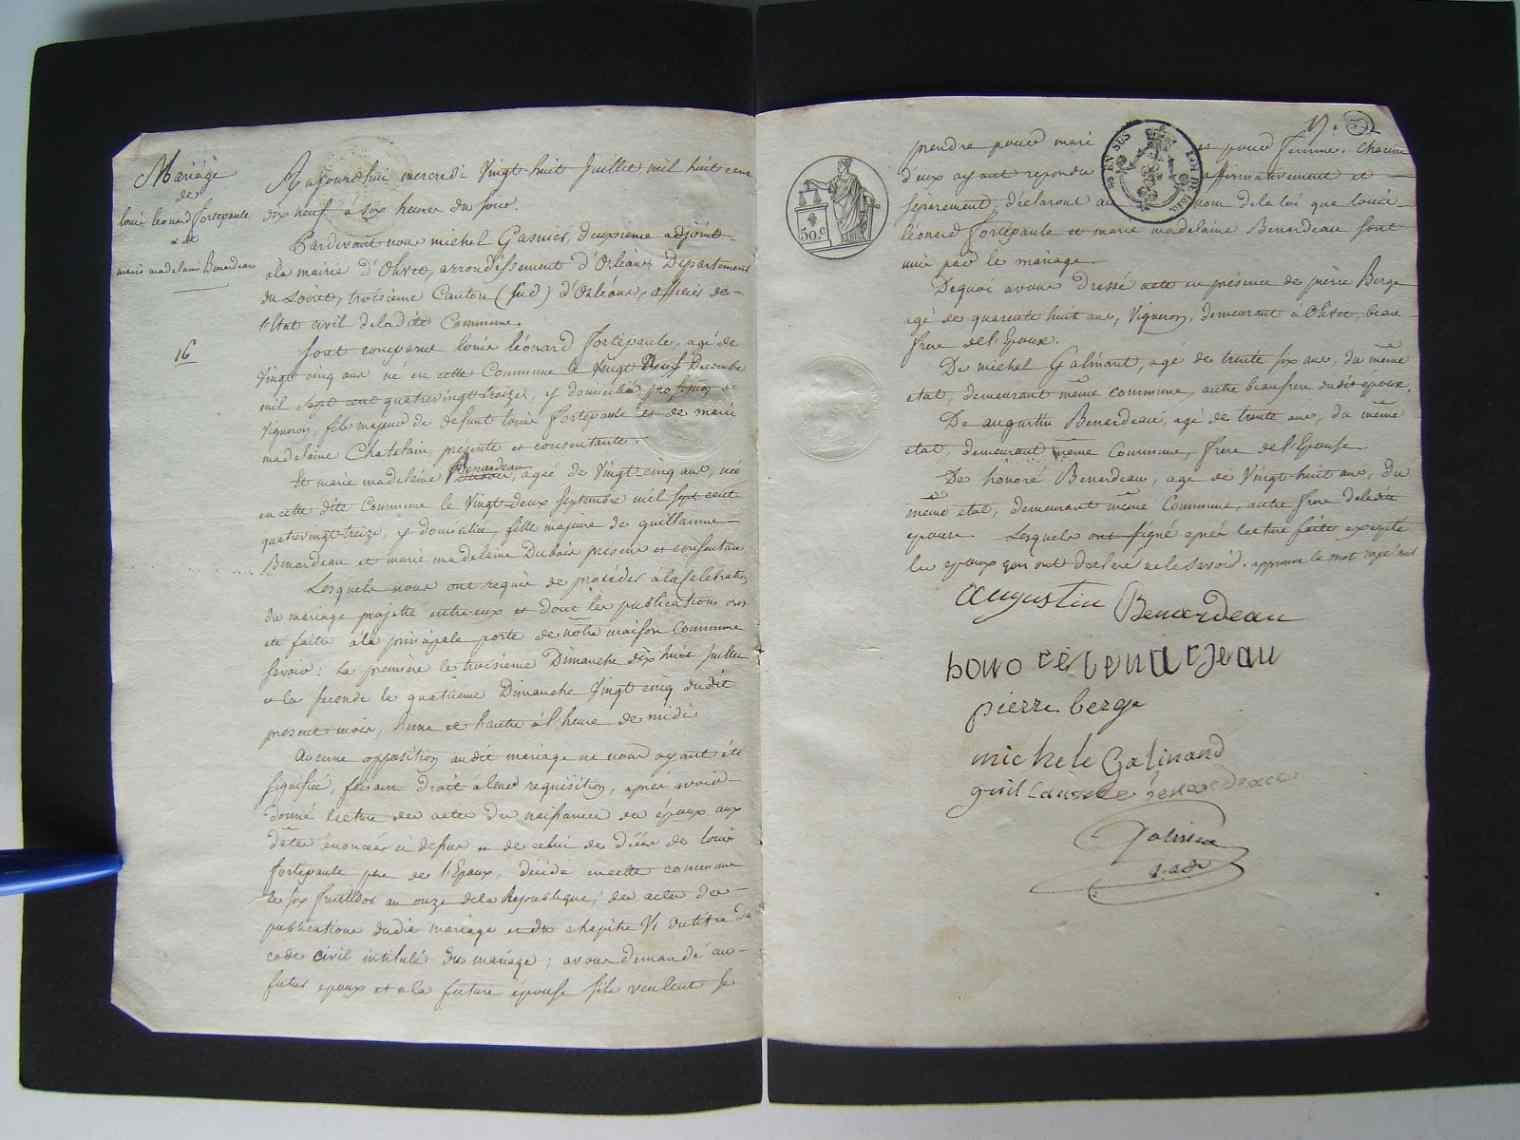 Mariage
de
louis léonard fortépaule
& de
marie madelaine Benardeau
16
Aujourd'hui mercredi Vingt huit Juillet mil huit cent
dix neuf, à six heures du soir.
Pardevant nous michel Gasnier, deuxieme adjoint
à la mairie d'Olivet, arrondissement d'Orléans Département
du Loiret, troisieme Canton (Sud) d'Orléans, officier de
l'Etat civil de ladite Commune.
Sont comparus louis léonard fortépaule, agé de
Vingt cinq ans né en cette Commune le Vingt Neuf Decembre
mil sept cent quatrevingt treize, y domicilié profession de
Vigneron, fils majeur de defunt louis fortépaule et de marie
madelaine Chatelain, présente et consentante.
Et marie madelaine Benardeau, agée de Vingt cinq ans, née
en cette dite Commune le Vingt deux Septembre mil sept cent
quatrevingt treize, y domiciliée, fille majeure de guillaume
Benardeau et marie madelaine Dubois présens et consentans
Lesquels nous ont requis de procéder à la célébration
du mariage projetté entr'eux et dont les publications ont
été faites à la principale porte de nôtre maison Commune
Savoir: la première le troisieme Dimanche dix huit Juillet
& la seconde le quatrieme Dimanche Vingt cinq dudit
présent mois, l'une et l'autre à l'heure de midi
Aucune opposition audit mariage ne nous ayant été
signifiée, faisant Droit à leur requisition, après avoir
donné lecture des actes de naissance des époux aux
dates énoncées ci dessus & de celui de décès de louis
fortépaule père de l'Epoux, décédé en cette commune
le six fructidor an onze de la République, des actes de
publications dudit mariage et du chapitre VI du titre du
code civil intitulé du mariage; avons demandé au
futur epoux et à la future épouse s'ils veulent se
prendre pour mari et pour femme. chacun
d'eux ayant repondu affirmativement et
séparément, déclarons au nom de la loi que louis
léonard fortépaule et marie madelaine Benardeau sont
unis par le mariage.
De quoi avons dressé acte en présence de pierre Berge
agé de quarente huit ans, Vigneron, demeurant à Olivet, beau
frere de l'Epoux.
De michel Galinant, agé de trente six ans, du même
etat, demeurant même commune, autre beaufrere dudit epoux.
De augustin Benardeau, agé de trente ans, du même
etat, demeurant même Commune, frere de l'Epouse
De honoré Benardeau, agé de Vingt huit ans, du
même etat, demeurant même Commune, autre frere de ladite
epouse. Lesquels ont signé après lecture faite excepté
les epoux qui ont declaré ne le savoir. approuvé le mot rayé nul
augustin Benardeau
honoré benardeau
pierre berge
michele Galinand
guillaume benardeau
50.c
EN SUS